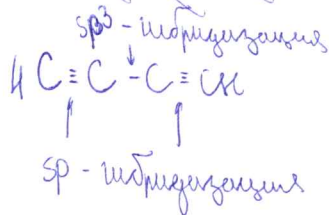 sp³ - гибридизация
HC≡C-C≡CH
sp - гибридизация